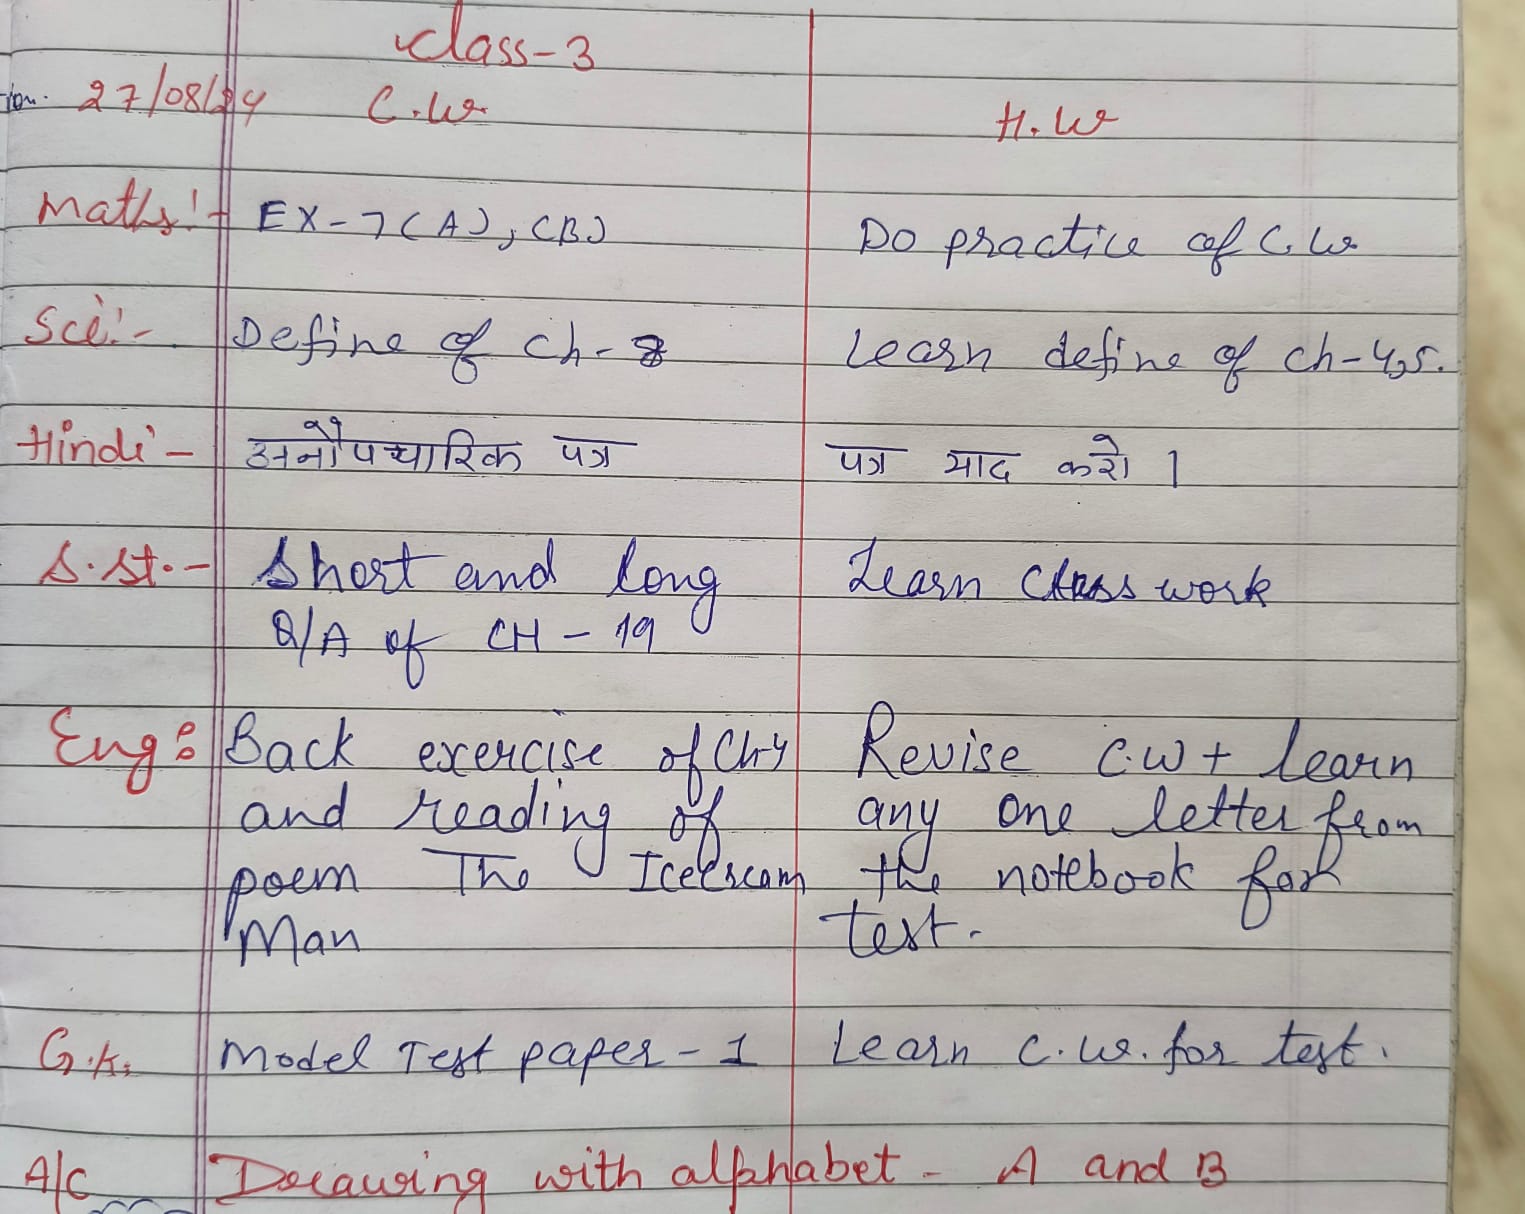 class-3
27/08/24 C.W H.W
Maths:- EX-7(A), (B) Do practice of C.W
Sci:- Define of ch-8 Learn define of ch-4,5.
Hindi- अनौपचारिक पत्र पत्र याद करो ।
S.St.- Short and long Learn Class work
Q/A of CH-19
Eng: Back exercise of Ch-4 Revise C.W + learn
and reading of any one letter from
poem The Icecream the notebook for
Man test.
G.K. Model Test paper-1 Learn C.W. for test.
A/C Drawing with alphabet - A and B